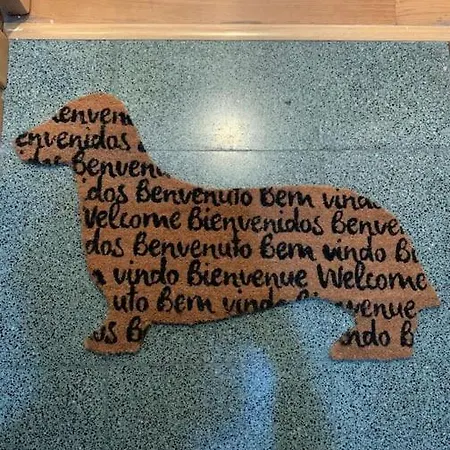 envenu
envenidos
Benvenu
dos Benvenuto Bem vindo
Welcome Bienvenidos Benve
dos Benvenuto Bem vindo Bi
m vindo Bienvenue Welcome
uto Bem vindo Bienvenue
os B
ndo B